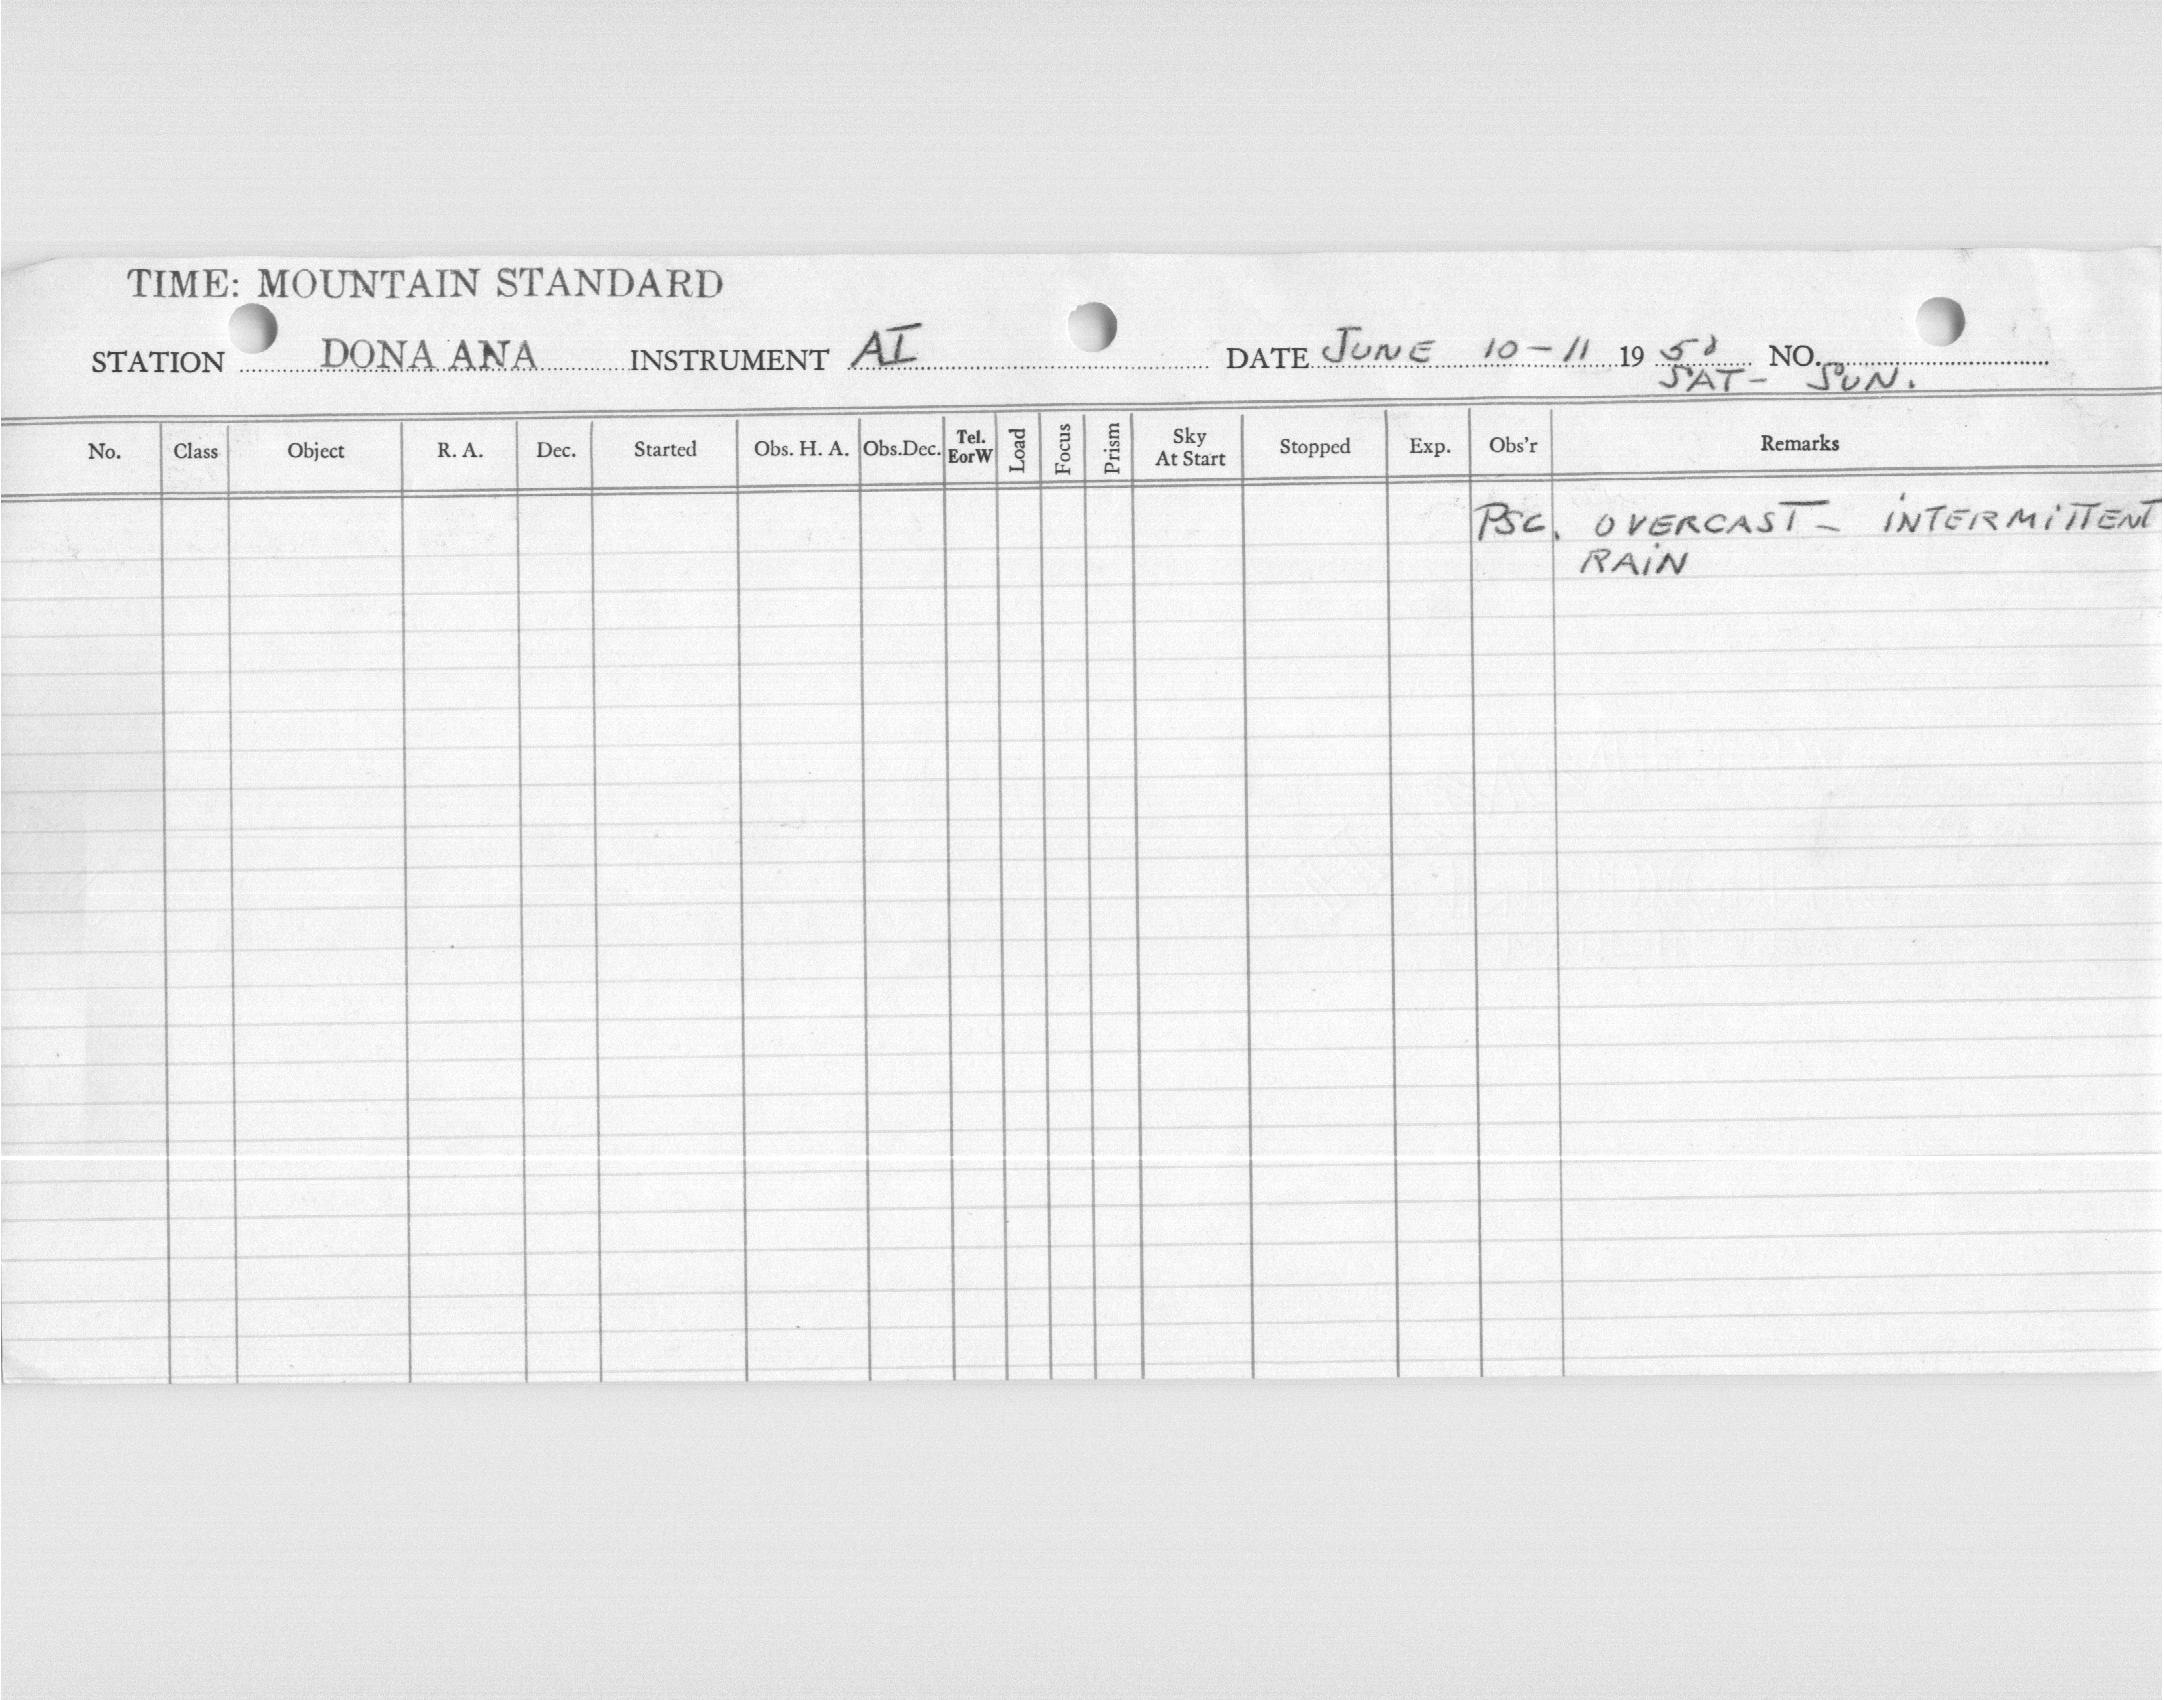 TIME: MOUNTAIN STANDARD
STATION DONA ANA INSTRUMENT AI DATE JUNE 10-11 1950 NO.
SAT- SUN.
No. Class Object R. A. Dec. Started Obs. H. A. Obs.Dec. Tel. EorW Load Focus Prism Sky At Start Stopped Exp. Obs'r Remarks
PSC. OVERCAST - INTERMITTENT
RAIN